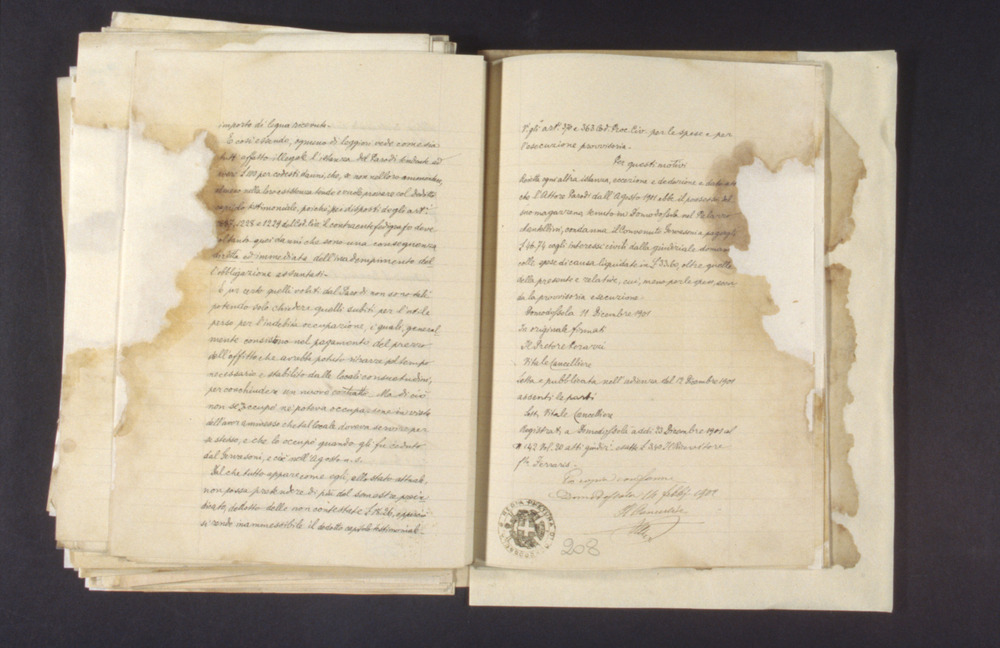 importo di legna ricevute.
E così essendo, ognuno di leggieri vede come sia
affatto illegale l'istanza del Parodi tendente ad
avere £ 100 per codesti danni, che, se non nel loro ammontare,
almeno nella loro esistenza tende a mala provare col dedotto
capitolo testimoniale, poiché pei disposti degli art.i
1227, 1228 e 1229 del Cod. Civ. il contraente fedigrafo deve
soltanto quei danni che sono una conseguenza
diretta ed immediata dell'inadempimento del
l'obbligazione assuntasi.
E per certo quelli voluti dal Parodi non sono tali
potendo solo chiedere quelli subiti per l'utile
perso per l'indebita occupazione, i quali, general
mente consistono nel pagamento del prezzo
dell'affitto che avrebbe potuto ritrarre pel tempo
necessario e stabilito dalle locali consuetudini,
per conchiudere un nuovo contratto. Ma di ciò
non si occupò nè poteva occuparsene in vista
dell'aver ammesso che tal locale doveva servire per
se stesso, e che lo occupò quando gli fu ceduto
dal Gervasoni, e cioè nell'Agosto u.s.
Dal che tutto appare come egli, allo stato attuale,
non possa pretendere di più del
dedotto delle non contestate
si rende inammessibile il dedotto capitolo testimoniale.
P. gli art.i 370 e 363 Cod. Proc. Civ. per le spese e per
l'esecuzione provvisoria.
Per questi motivi
Reietta ogni altra istanza, eccezione e deduzione e dichiarato
che l'Attore Parodi dall'Agosto 1901 ebbe il possesso del
suo magazzeno tenuto in Domodossola nel Palazzo
condanna il Convenuto Gervasoni a pagargli
£ 46.74 cogli interessi civili dalla giudiziale domanda
colle spese di causa liquidate in £ oltre quelle
della presente e relative, cui, meno per le spese, accor
da la provvisoria esecuzione.
Domodossola 11 Dicembre 1901
In originale firmati
Il Pretore
Vitale Cancelliere
Letta e pubblicata nell'udienza del 12 Dicembre 1901
assenti le parti
Sott. Vitale Cancelliere
Registrata a Domodossola addì 23 Dicembre 1901 al
N° 142 Vol. 30 atti giudiz. esatte £ Il Ricevitore
f.to Ferraris.
Per copia conforme
Domodossola 14 febb. 1902
Il Cancelliere
REGIA PRETURA
208